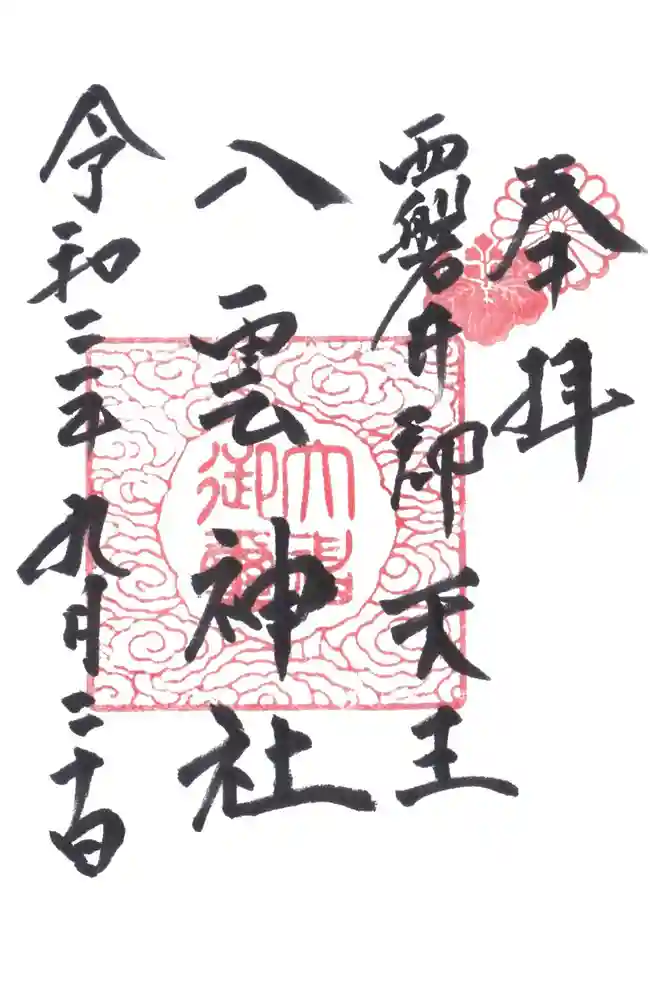 奉拝
西磐井郡 天王
八雲神社
令和二年九月二十日